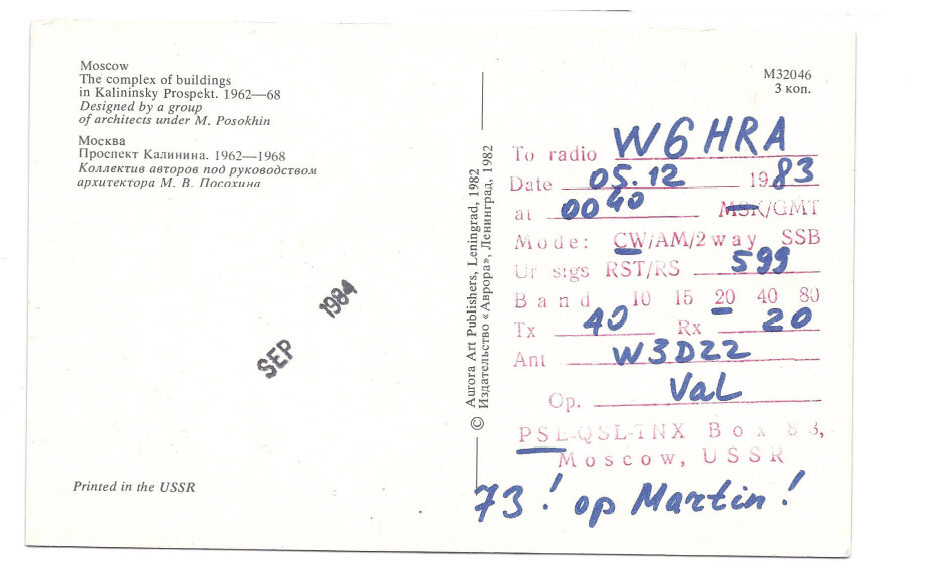 Moscow
The complex of buildings
in Kalininsky Prospekt. 1962—68
Designed by a group
of architects under M. Posokhin
Москва
Проспект Калинина. 1962—1968
Коллектив авторов под руководством
архитектора М. В. Посохина
SEP 1984
Printed in the USSR
© Aurora Art Publishers, Leningrad, 1982
Издательство «Аврора», Ленинград, 1982
M32046
3 коп.
To radio W6HRA
Date 05.12 1983
at 0040 MSK/GMT
Mode: CW/AM/2way SSB
Ur sigs RST/RS 599
Band 10 15 20 40 80
Tx 40 Rx 20
Ant W3DZZ
Op. Val
PSE-QSL-TNX Box 88,
Moscow, USSR
73! op Martin!